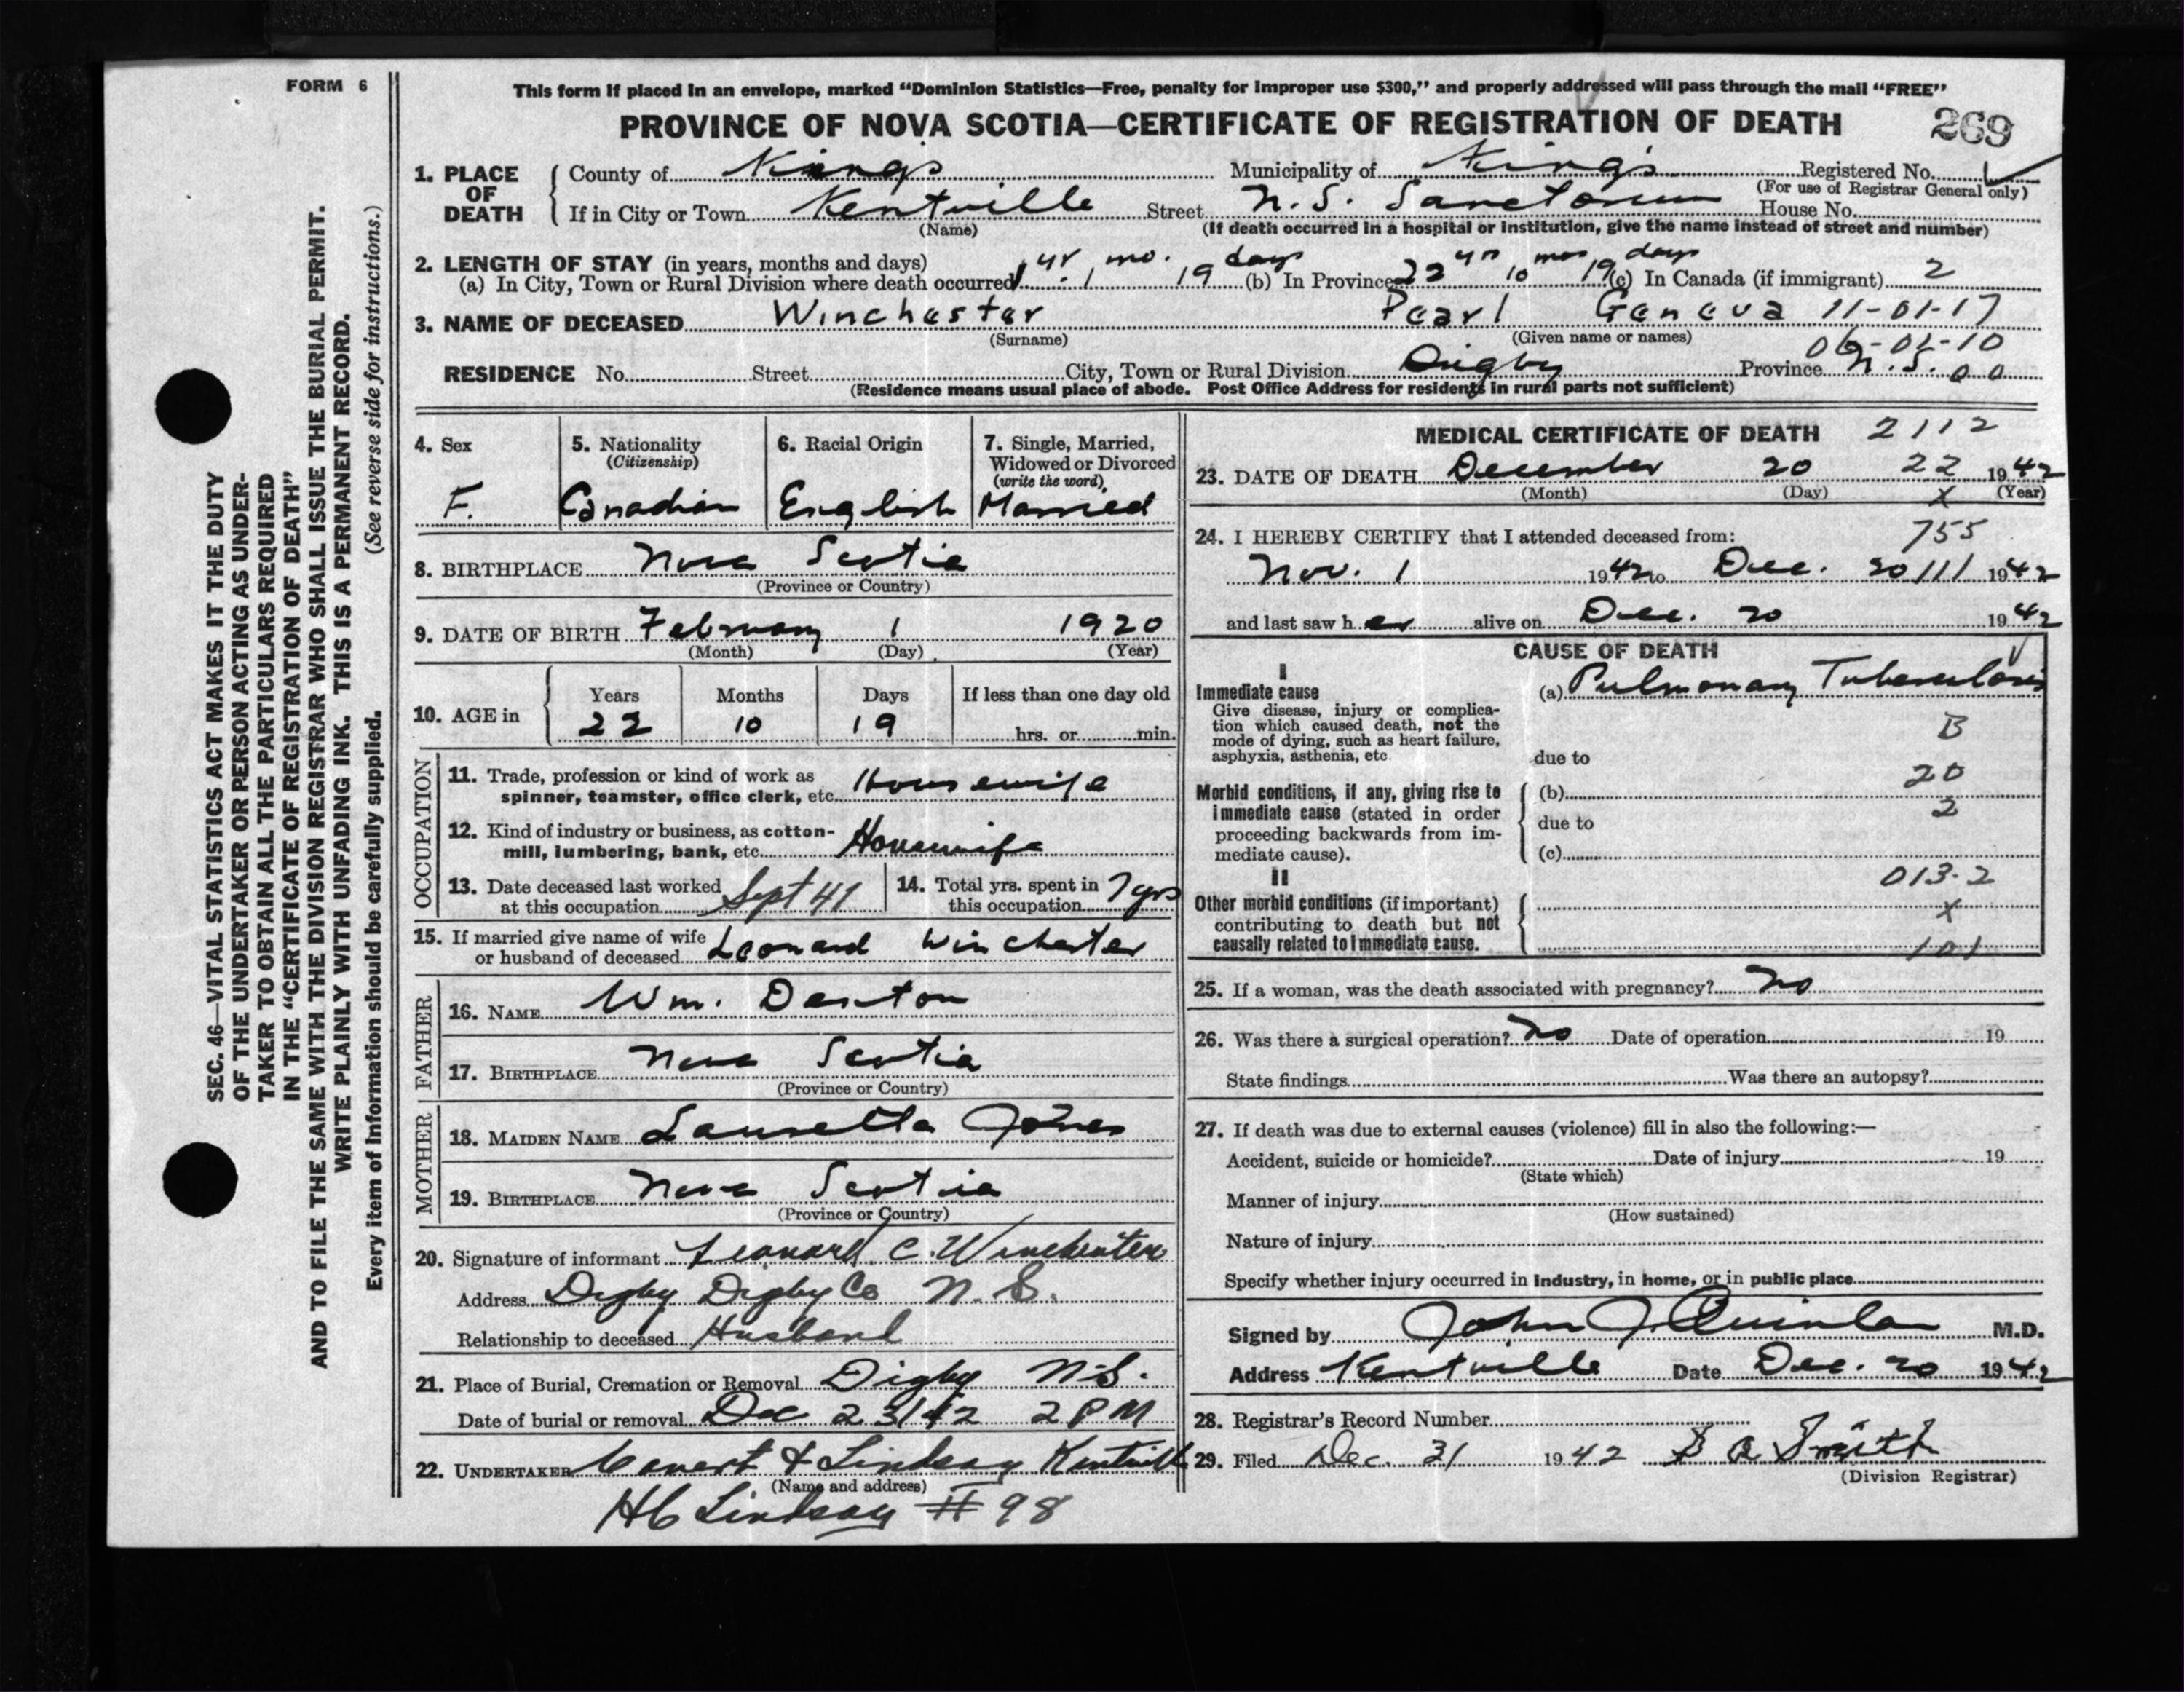 FORM 6
This form if placed in an envelope, marked “Dominion Statistics—Free, penalty for improper use $300,” and properly addressed will pass through the mail “FREE”
PROVINCE OF NOVA SCOTIA—CERTIFICATE OF REGISTRATION OF DEATH 269
1. PLACE OF DEATH
County of Kings Municipality of Kings Registered No.
(For use of Registrar General only)
If in City or Town Kentville Street N. S. Sanatorium House No.
(Name) (If death occurred in a hospital or institution, give the name instead of street and number)
2. LENGTH OF STAY (in years, months and days)
(a) In City, Town or Rural Division where death occurred 1 yr. 1 mo. 19 days (b) In Province 22 yrs 10 mos 19 days (c) In Canada (if immigrant) 2
3. NAME OF DECEASED Winchester Pearl Geneva 11-01-17
(Surname) (Given name or names) 06-02-10
RESIDENCE No. Street City, Town or Rural Division Digby Province N.S. 00
(Residence means usual place of abode. Post Office Address for residents in rural parts not sufficient)
4. Sex
F.
5. Nationality
(Citizenship)
Canadian
6. Racial Origin
English
7. Single, Married,
Widowed or Divorced
(write the word)
Married
8. BIRTHPLACE Nova Scotia
(Province or Country)
9. DATE OF BIRTH February 1 1920
(Month) (Day) (Year)
10. AGE in
Years Months Days If less than one day old
22 10 19 hrs. or min.
OCCUPATION
11. Trade, profession or kind of work as
spinner, teamster, office clerk, etc. Housewife
12. Kind of industry or business, as cotton-
mill, lumbering, bank, etc. Housewife
13. Date deceased last worked
at this occupation Sept 41
14. Total yrs. spent in
this occupation 7 yrs
15. If married give name of wife
or husband of deceased Leonard Winchester
FATHER
16. NAME Wm. Denton
17. BIRTHPLACE Nova Scotia
(Province or Country)
MOTHER
18. MAIDEN NAME Lauretta Jones
19. BIRTHPLACE Nova Scotia
(Province or Country)
20. Signature of informant Leonard C. Winchester
Address Digby Digby Co N. S.
Relationship to deceased Husband
21. Place of Burial, Cremation or Removal Digby N.S.
Date of burial or removal Dec 23/42 2 PM
22. UNDERTAKER & Lindsay Kentville
(Name and address)
HC Lindsay # 98
MEDICAL CERTIFICATE OF DEATH 2112
23. DATE OF DEATH December 20 22 1942
(Month) (Day) x (Year)
24. I HEREBY CERTIFY that I attended deceased from: 755
Nov. 1 1942 to Dec. 20 111 1942
and last saw her alive on Dec. 20 1942
CAUSE OF DEATH
I
Immediate cause
Give disease, injury or complica-
tion which caused death, not the
mode of dying, such as heart failure,
asphyxia, asthenia, etc
(a) Pulmonary Tuberculosis
B
due to
20
Morbid conditions, if any, giving rise to
immediate cause (stated in order
proceeding backwards from im-
mediate cause).
(b)
2
due to
(c)
II
013·2
Other morbid conditions (if important)
contributing to death but not
causally related to immediate cause.
x
101
25. If a woman, was the death associated with pregnancy? No
26. Was there a surgical operation? No Date of operation 19
State findings Was there an autopsy?
27. If death was due to external causes (violence) fill in also the following:—
Accident, suicide or homicide? Date of injury 19
(State which)
Manner of injury
(How sustained)
Nature of injury
Specify whether injury occurred in industry, in home, or in public place
Signed by John J. Quinlan M.D.
Address Kentville Date Dec. 20 1942
28. Registrar's Record Number
29. Filed Dec. 31 1942 Smith
(Division Registrar)
SEC. 46—VITAL STATISTICS ACT MAKES IT THE DUTY
OF THE UNDERTAKER OR PERSON ACTING AS UNDER-
TAKER TO OBTAIN ALL THE PARTICULARS REQUIRED
IN THE “CERTIFICATE OF REGISTRATION OF DEATH”
AND TO FILE THE SAME WITH THE DIVISION REGISTRAR WHO SHALL ISSUE THE BURIAL PERMIT.
WRITE PLAINLY WITH UNFADING INK. THIS IS A PERMANENT RECORD.
Every item of Information should be carefully supplied. (See reverse side for instructions.)